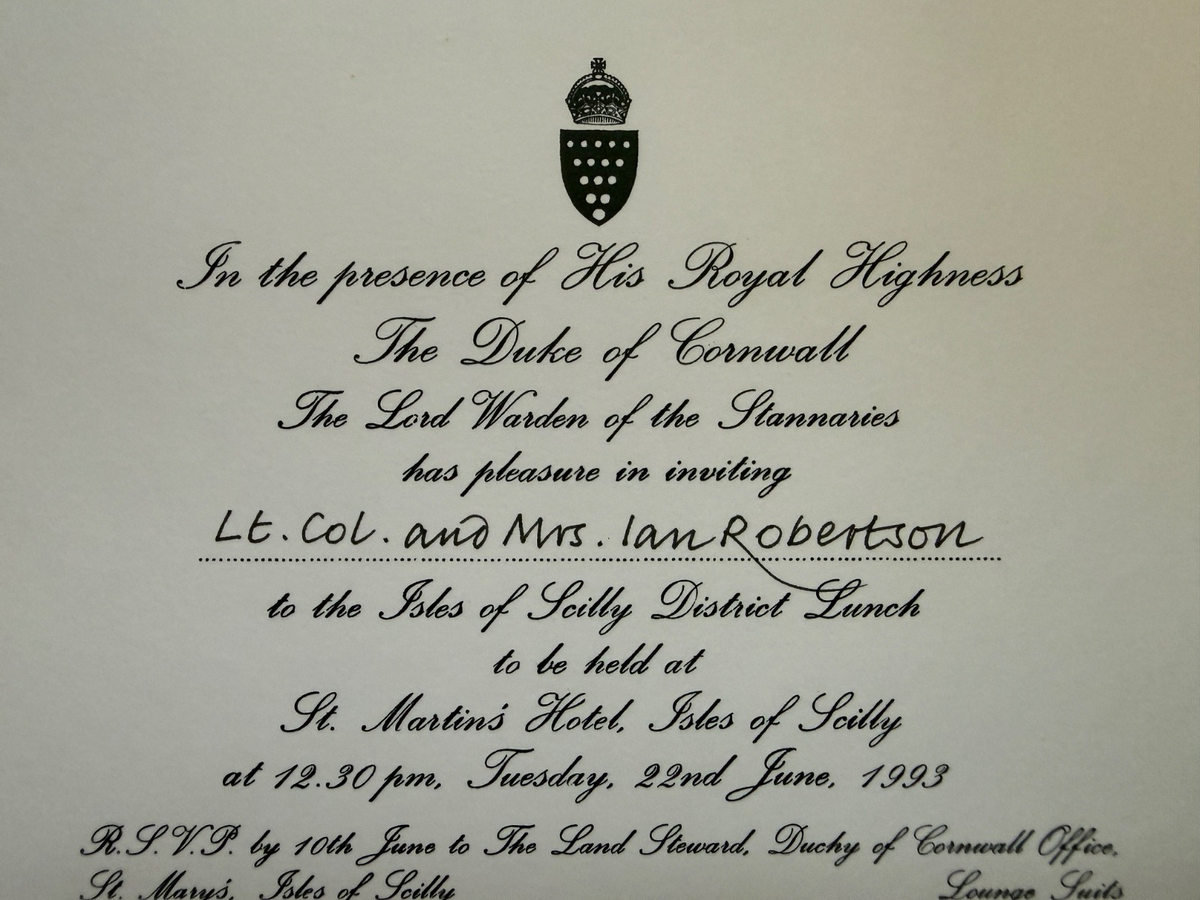 In the presence of His Royal Highness
The Duke of Cornwall
The Lord Warden of the Stannaries
has pleasure in inviting
Lt. Col. and Mrs. Ian Robertson
to the Isles of Scilly District Lunch
to be held at
St. Martin's Hotel, Isles of Scilly
at 12.30 pm, Tuesday, 22nd June, 1993
R.S.V.P. by 10th June to The Land Steward, Duchy of Cornwall Office,
St. Mary's, Isles of Scilly Lounge Suits